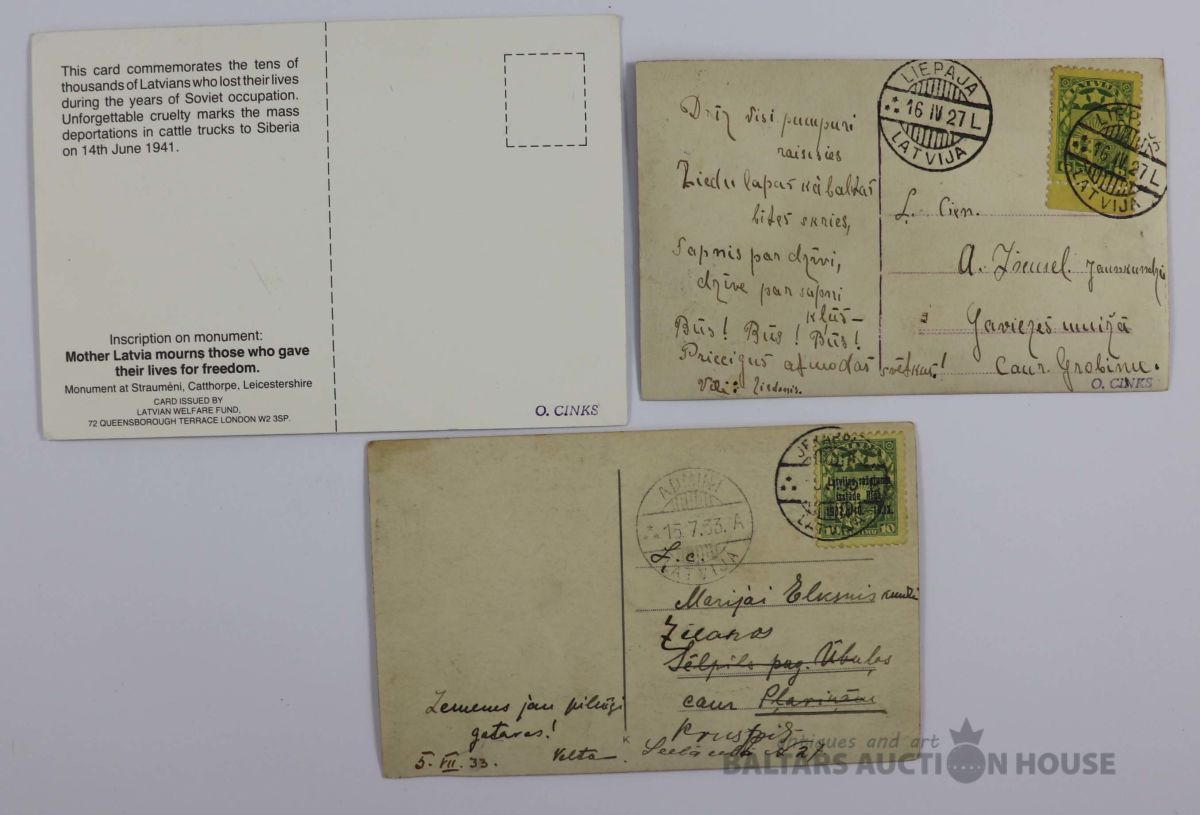 This card commemorates the tens of
thousands of Latvians who lost their lives
during the years of Soviet occupation.
Unforgettable cruelty marks the mass
deportations in cattle trucks to Siberia
on 14th June 1941.
Inscription on monument:
Mother Latvia mourns those who gave
their lives for freedom.
Monument at Straumēni, Catthorpe, Leicestershire
CARD ISSUED BY
LATVIAN WELFARE FUND,
72 QUEENSBOROUGH TERRACE LONDON W2 3SP.
O. CINKS
Drīz visi pumpuri
raisīsies
Ziedu lapas kā baltas
bites skries,
Sapnis par dzīvi,
dzīve par sapni
klūs –
Būs! Būs! Būs!
Priecīgus atmodas svētkus!
LIEPAJA
16 IV 27 L
LATVIJA
LIEPAJA
16 IV 27 L
LATVIJA
Ļ. Cien.
A. jaunkundzei
Gaviezes muižā
caur Grobiņu.
O. CINKS
Zemenes jau pilnīgi
gatavas!
5. VII. 33. Velta
15.7.33. A
LATVIJA
LATVIJA
Latvijas ražojumu
izstāde Rīgā
10
Ļ. c.
Marijai Elksnis
Sēlpils pag.
caur Pļaviņām
antiques and art
BALTARS AUCTION HOUSE